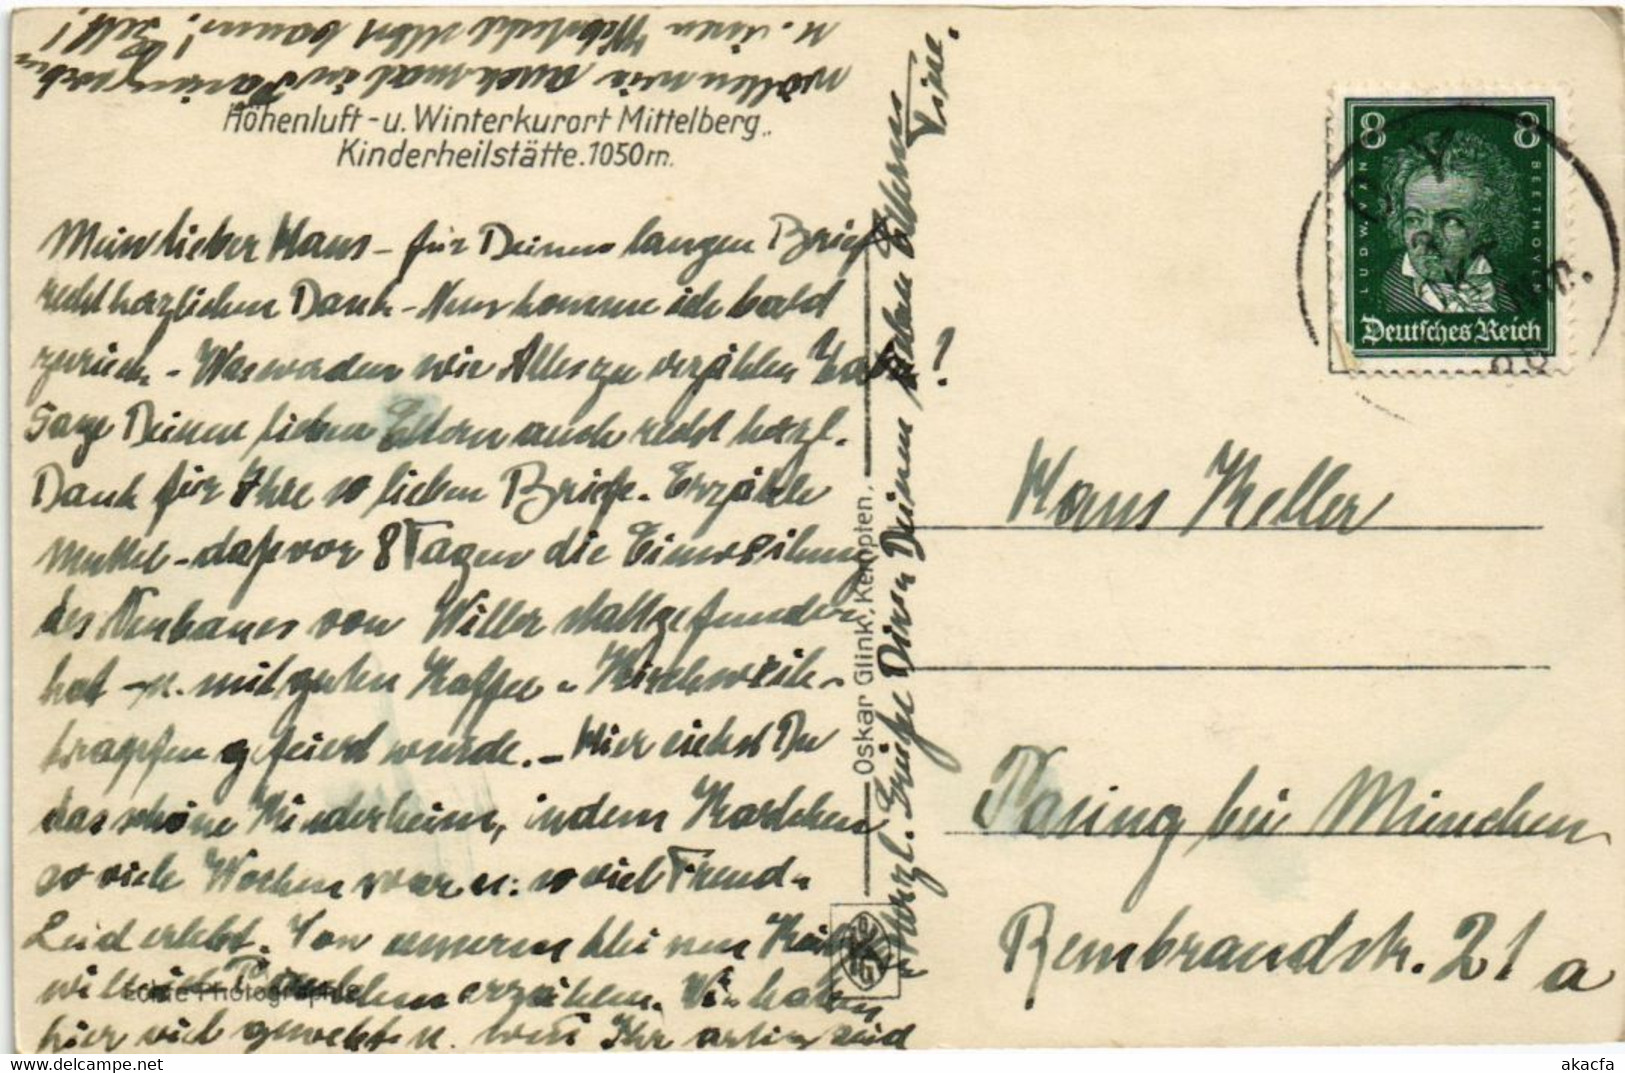 Höhenluft-u. Winterkurort Mittelberg,
Kinderheilstätte. 1050m.
Mein lieber Hans - für Deinen langen Brief
recht herzlichen Dank - Nun komme ich bald
zurück. - Was werden wir Alles zu erzählen haben!
Sage Deinen lieben Eltern auch recht herzl.
Dank für Ihre so lieben Briefe. Erzähle
Mutter - daß vor 8 Tagen die Einweihung
des Neubaues von Willer stattgefunden
hat - u. mit guten Kaffee u Kirchweih-
krapfen gefeiert wurde. - Hier siehst Du
das schöne Kinderheim, indem Karlchen
so viele Wochen war u. so viel Freud u
Leid erlebt. Von unseren kleinen
will ich erzählen. Wir haben
hier viel u. wenn Ihr artig seid
wollen wir auch mal in
u. einen selbst bauen!
Herzl. Grüße Deinen lieben Eltern
Tine.
Echte Photographie
Oskar Glink, Kempten.
8 8
LUDW. VAN
BEETHOVEN
Deutsches Reich
Hans Keller
Pasing bei München
Rembrandtstr. 21 a
akacfa